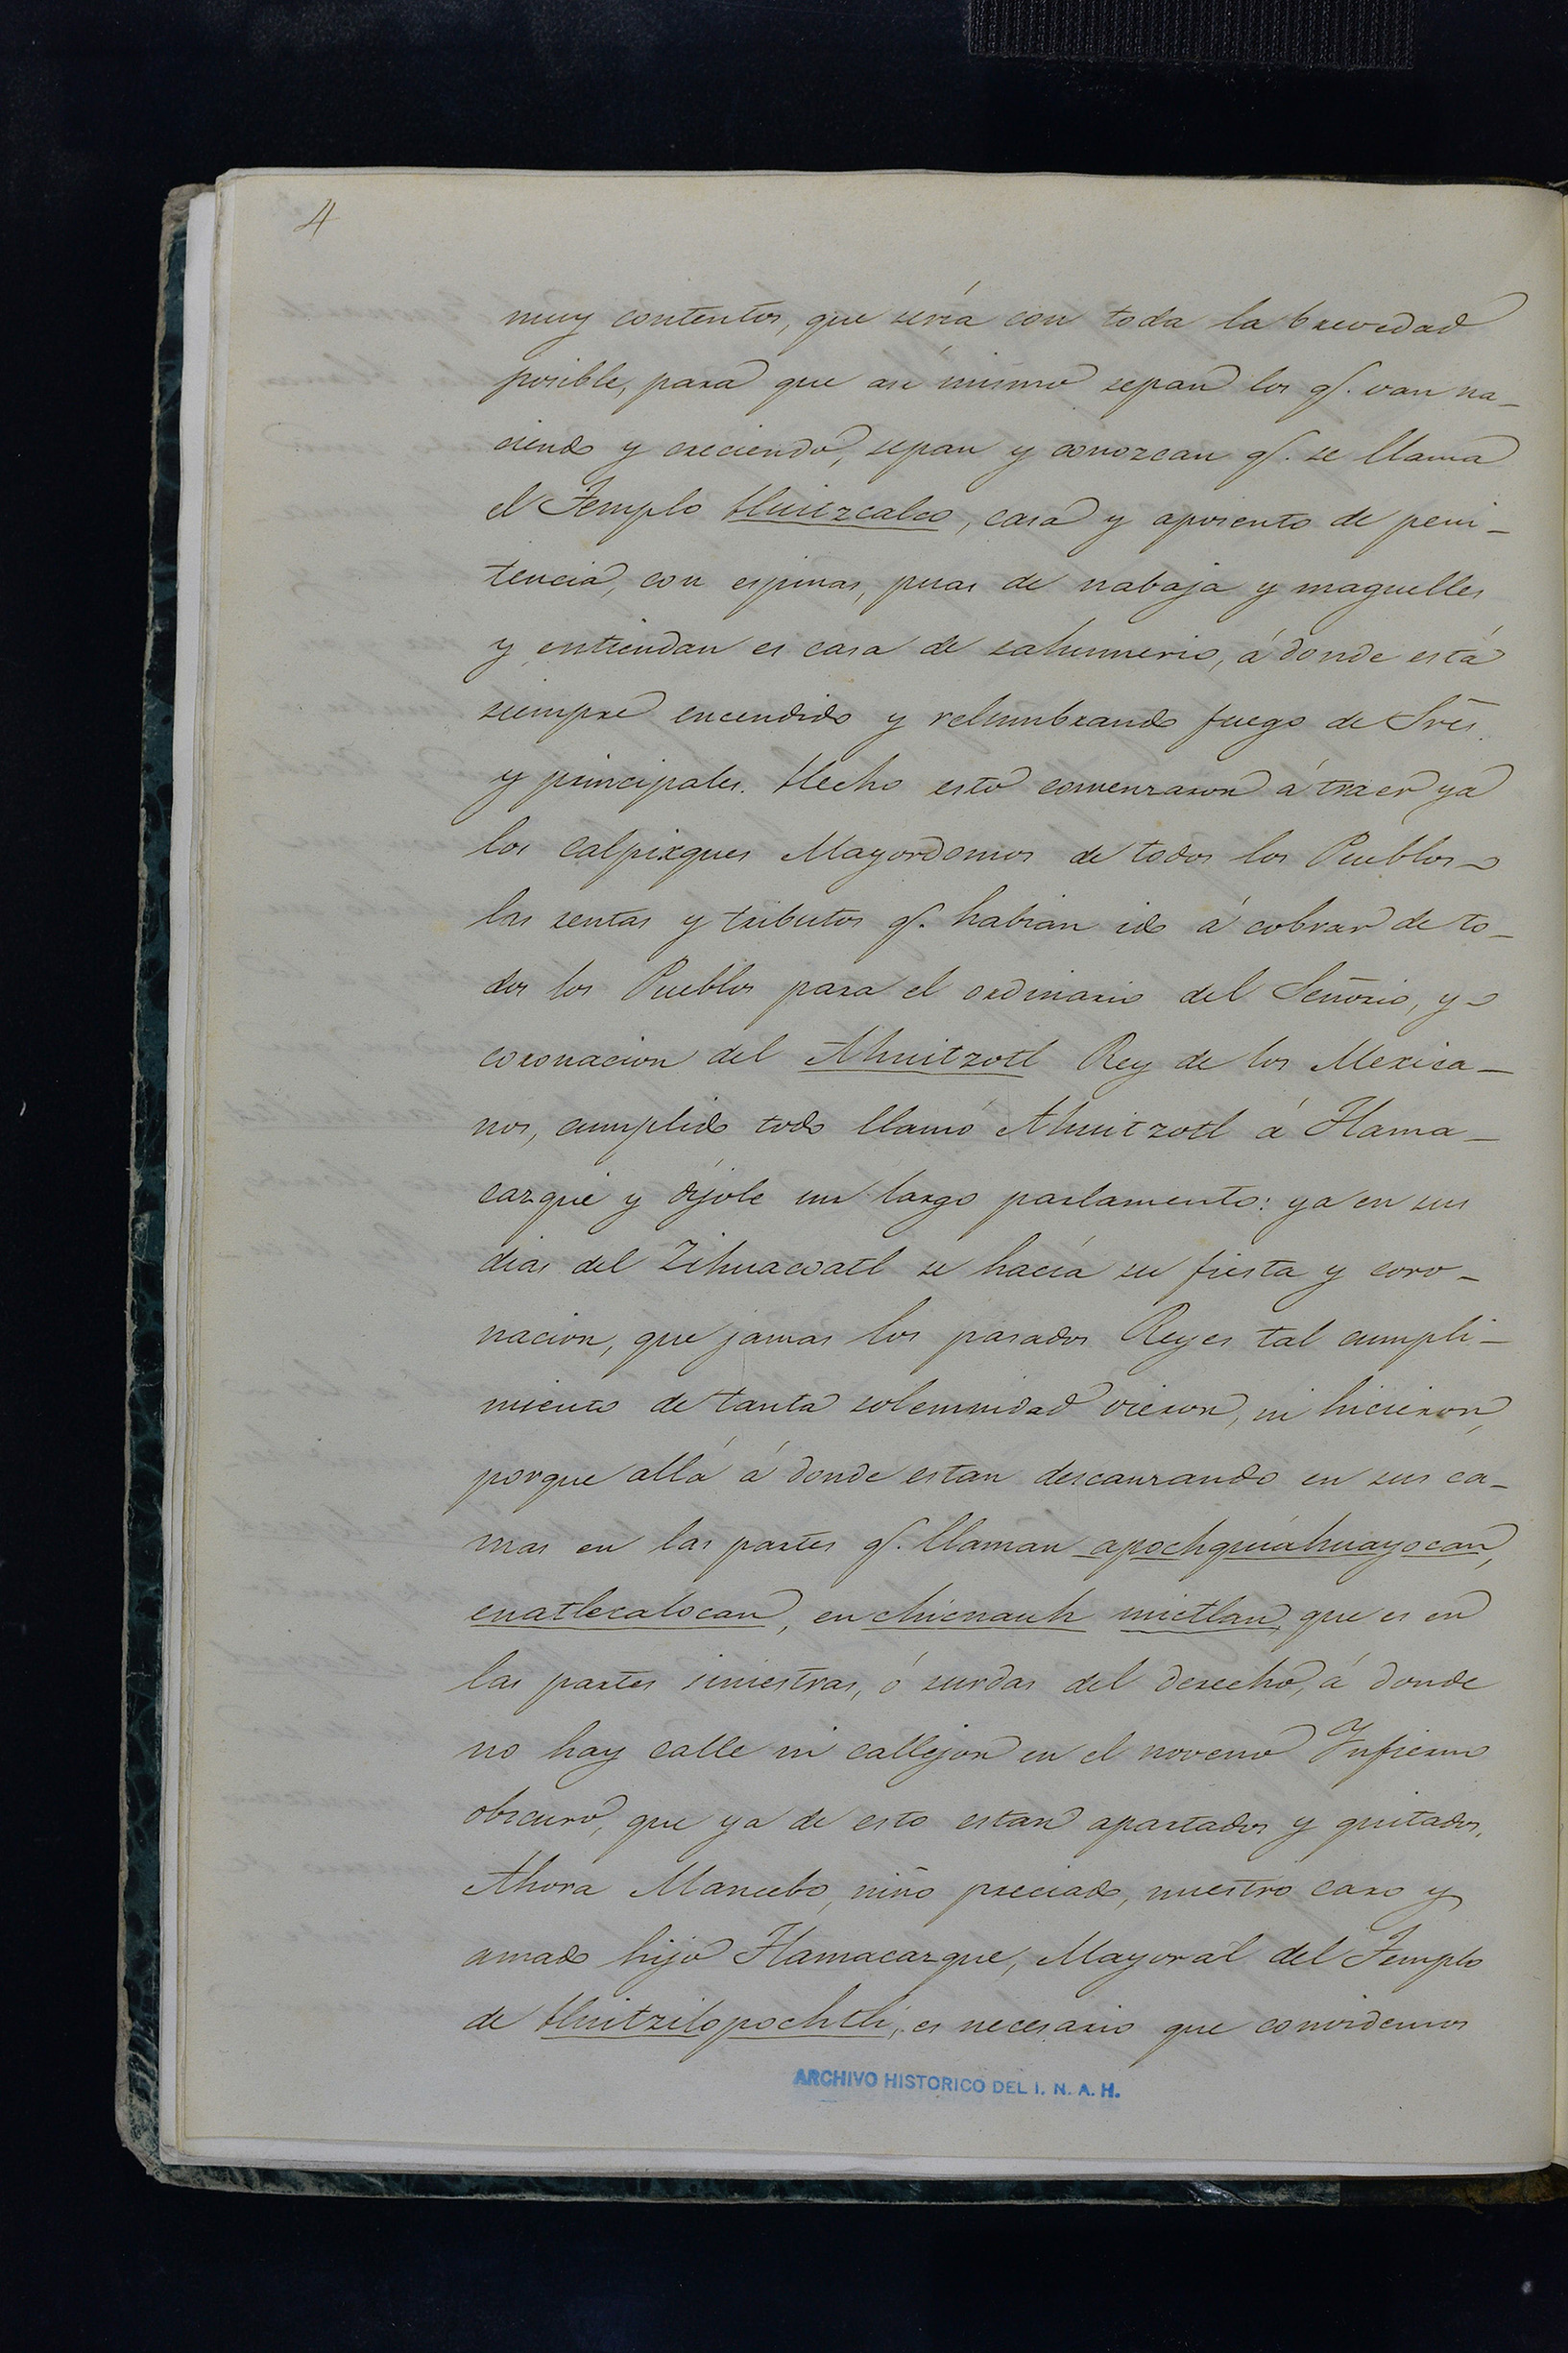 4
muy contentos, que sería con toda la brevedad
posible, para que asi mismo sepan los q.e van na-
ciendo y creciendo, sepan y conozcan q.e se llama
el Templo Huitzcalco, casa y aposento de peni-
tencia, con espinas, puas de nabaja y maguelles
y entiendan es casa de sahumerio, á donde está
siempre encendido y relumbrando fuego de Sres.
y principales. Hecho esto comenzaron á traer ya
los calpixques Mayordomos de todos los Pueblos
las rentas y tributos q.e habian ido á cobrar de to-
dos los Pueblos para el ordinario del Señorio, y
coronacion del Ahuitzotl Rey de los Mexica-
nos, cumplido todo llamó Ahuitzotl á Tlama-
cazque y díjole un largo parlamento: ya en sus
dias del Zihuacoatl se hacía su fiesta y coro-
nacion, que jamas los pasados Reyes tal cumpli-
miento de tanta solemnidad vieron, ni hicieron,
porque allá á donde estan descanzando en sus ca-
mas en las partes q.e llaman apochquiahuayocan,
enatlecalocan, en chicnauh mictlan, que es en
las partes siniestras, ó surdas del derecho, á donde
no hay calle ni callejon en el noveno Infierno
obscuro, que ya de esto estan apartados y quitados.
Ahora Mancebo, niño preciado, nuestro caro y
amado hijo Tlamacazque, Mayoral del Templo
de Huitzilopochtli, es necesario que convidemos
ARCHIVO HISTORICO DEL I. N. A. H.